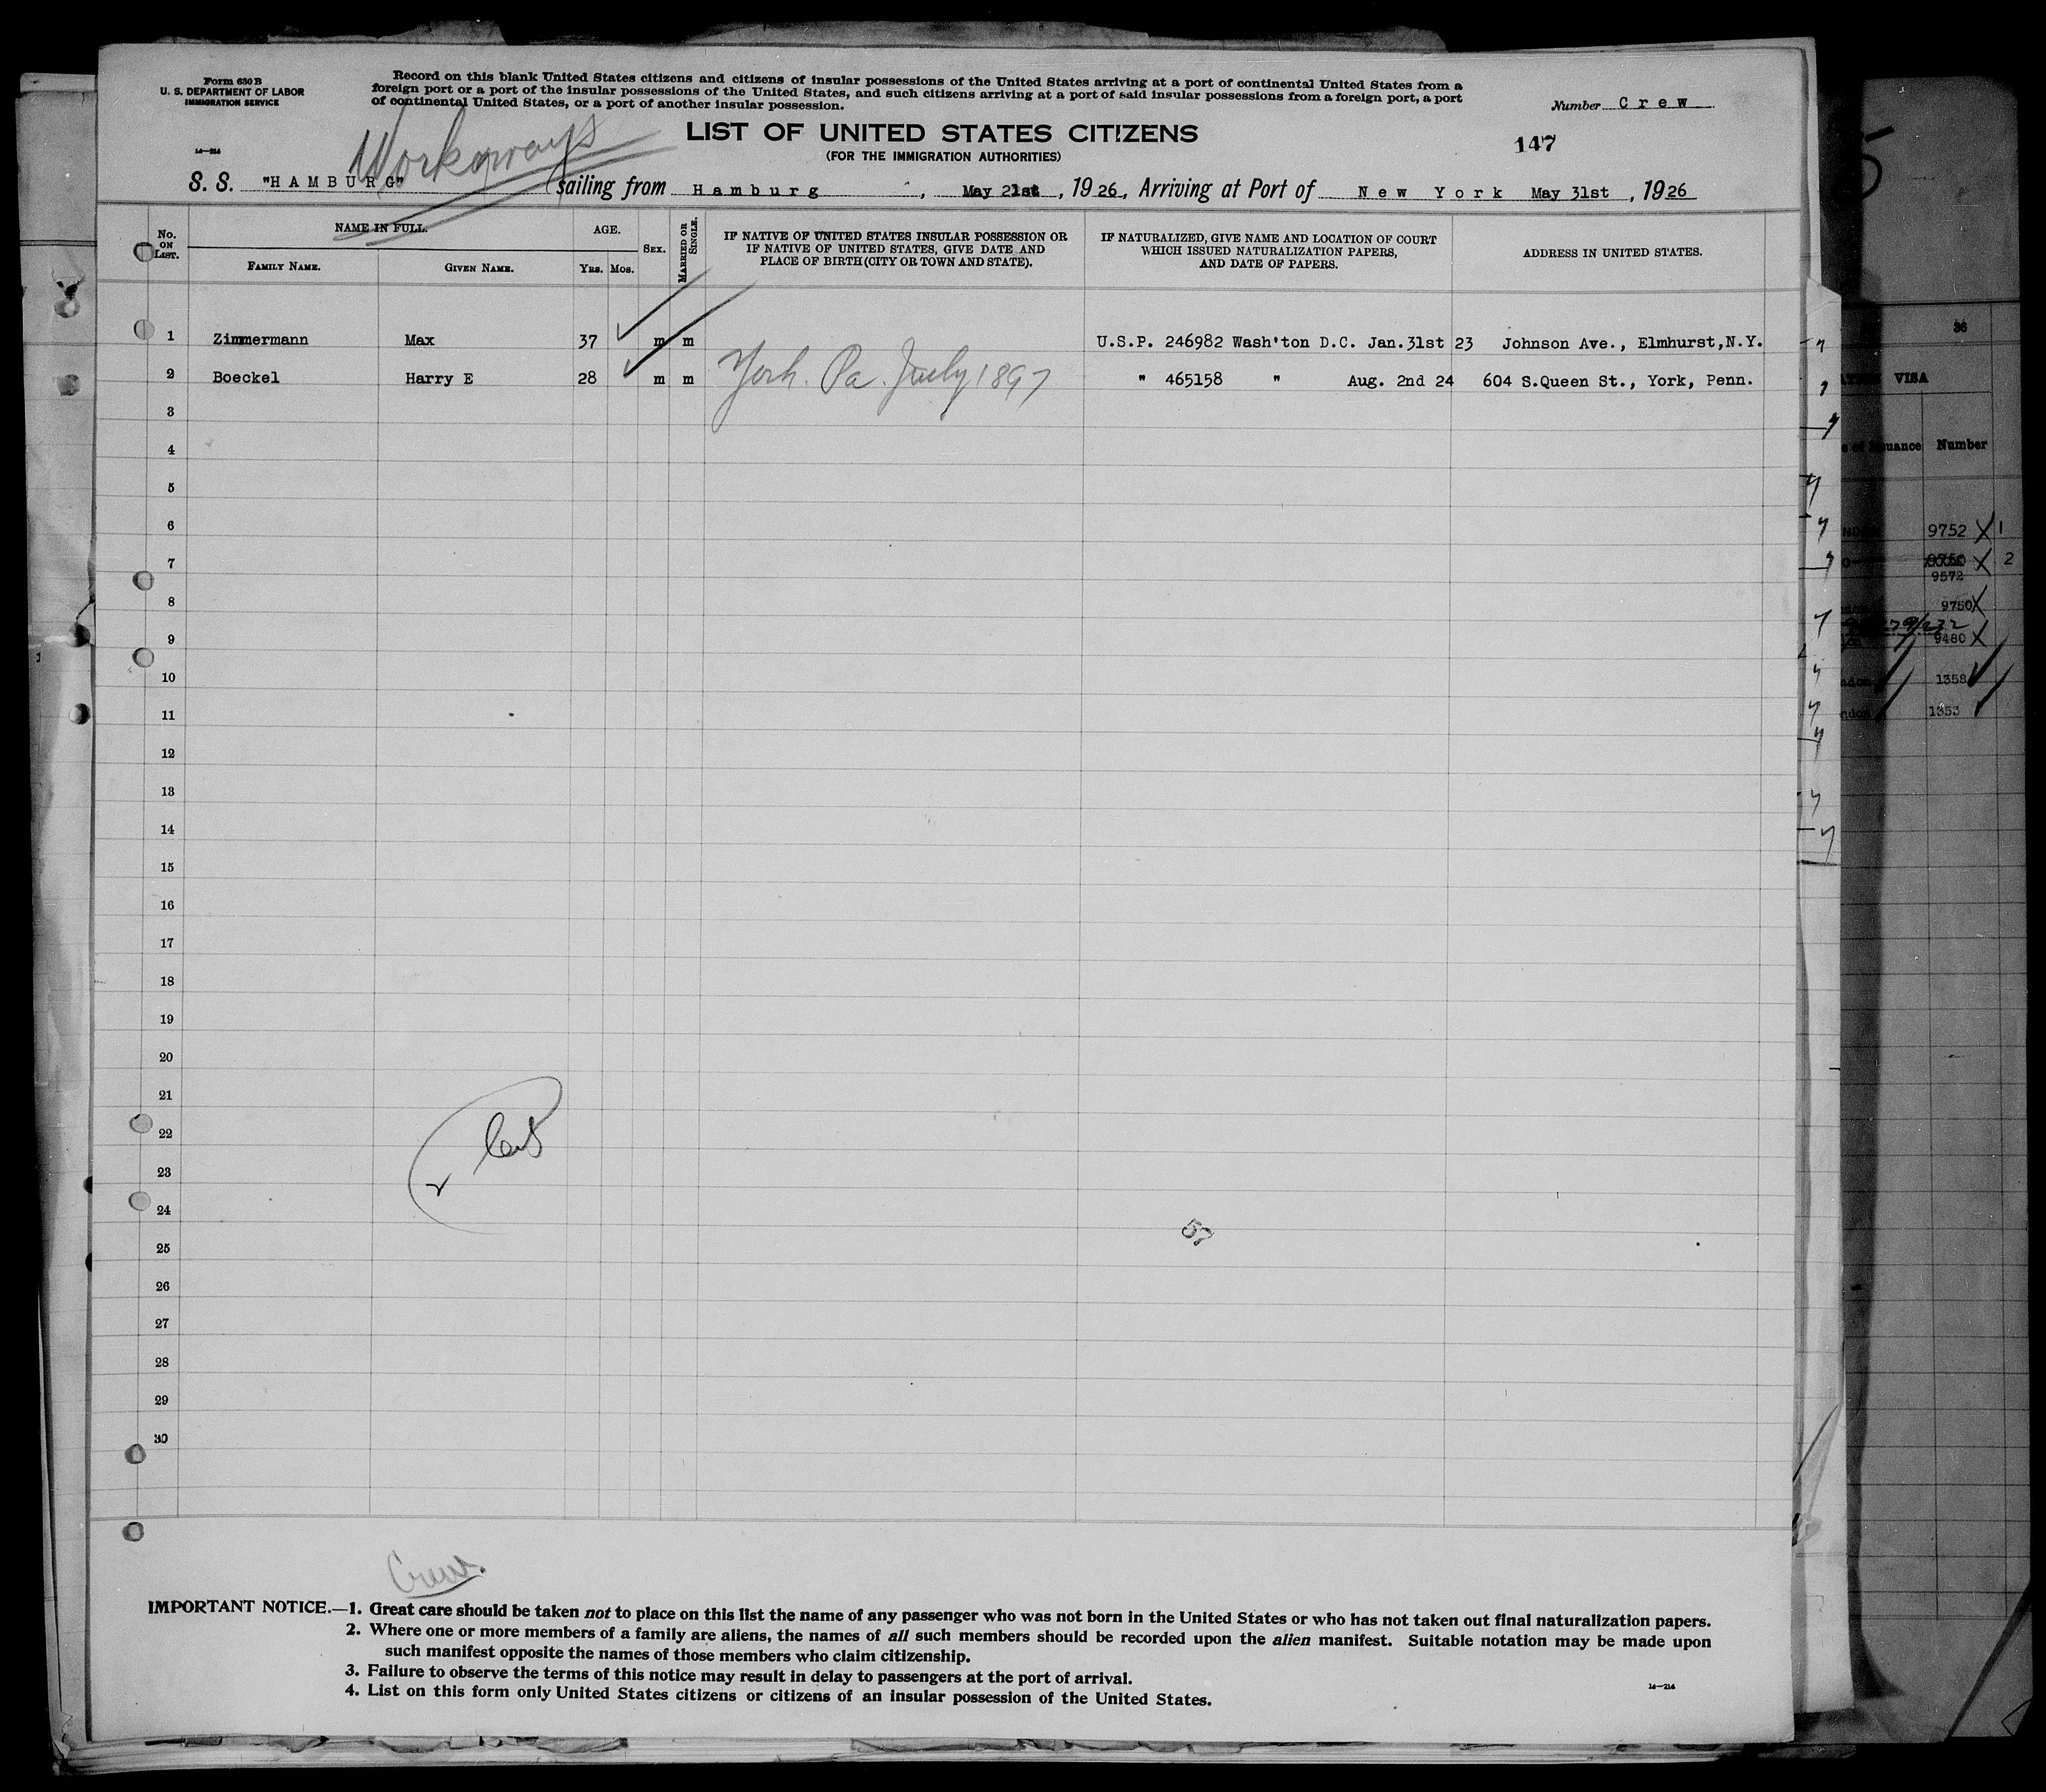 Form 630 B
U. S. DEPARTMENT OF LABOR
IMMIGRATION SERVICE
Record on this blank United States citizens and citizens of insular possessions of the United States arriving at a port of continental United States from a
foreign port or a port of the insular possessions of the United States, and such citizens arriving at a port of said insular possessions from a foreign port, a port
of continental United States, or a port of another insular possession.
Number Crew
Workaways
LIST OF UNITED STATES CITIZENS
(FOR THE IMMIGRATION AUTHORITIES)
147
14—214
S. S. "HAMBURG" sailing from Hamburg, May 21st, 1926, Arriving at Port of New York May 31st, 1926
No. ON LIST. NAME IN FULL. AGE. SEX. MARRIED OR SINGLE. IF NATIVE OF UNITED STATES INSULAR POSSESSION OR IF NATIVE OF UNITED STATES, GIVE DATE AND PLACE OF BIRTH (CITY OR TOWN AND STATE). IF NATURALIZED, GIVE NAME AND LOCATION OF COURT WHICH ISSUED NATURALIZATION PAPERS, AND DATE OF PAPERS. ADDRESS IN UNITED STATES.
FAMILY NAME. GIVEN NAME. YRS. MOS.
1 Zimmermann Max 37 m m U.S.P. 246982 Wash'ton D.C. Jan.31st 23 Johnson Ave., Elmhurst,N.Y.
2 Boeckel Harry E 28 m m York. Pa. July 1897 " 465158 " Aug. 2nd 24 604 S.Queen St., York, Penn.
3
4
5
6
7
8
9
10
11
12
13
14
15
16
17
18
19
20
21
22
23
24
25
26
27
28
29
30
57
Crew.
IMPORTANT NOTICE.—1. Great care should be taken not to place on this list the name of any passenger who was not born in the United States or who has not taken out final naturalization papers.
2. Where one or more members of a family are aliens, the names of all such members should be recorded upon the alien manifest. Suitable notation may be made upon
such manifest opposite the names of those members who claim citizenship.
3. Failure to observe the terms of this notice may result in delay to passengers at the port of arrival.
4. List on this form only United States citizens or citizens of an insular possession of the United States.
14—214
5
36
VISA
Number
9752 X 1
X 2
9572
9750 X
9480 X
1358
1353